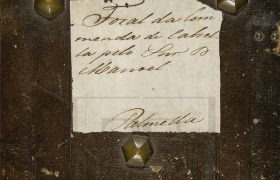 Foral da Com
menda de Cabrel
la pelo Snr D
Manoel
Palmella